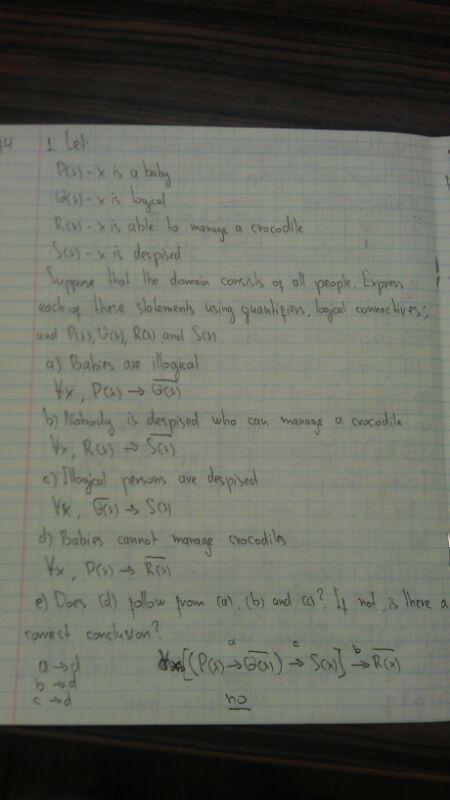 14 1. Let:
P(x) - x is a baby
Q(x) - x is logical
R(x) - x is able to manage a crocodile
S(x) - x is despised
Suppose that the domain consists of all people. Express
each of these statements using quantifiers, logical connectives;
and P(x), Q(x), R(x) and S(x)
a) Babies are illogical
∀x, P(x) → Q̅(̅x̅)̅
b) Nobody is despised who can manage a crocodile
∀x, R(x) → S̅(̅x̅)̅
c) Illogical persons are despised
∀x, Q̅(x) → S(x)
d) Babies cannot manage crocodiles
∀x, P(x) → R̅(̅x̅)̅
e) Does (d) follow from (a), (b) and (c)? If not, is there a
correct conclusion?
a c b
a → d [(P(x) → Q̅(̅x̅)̅) → S(x)] → R̅(̅x̅)̅
b → d
c → d no